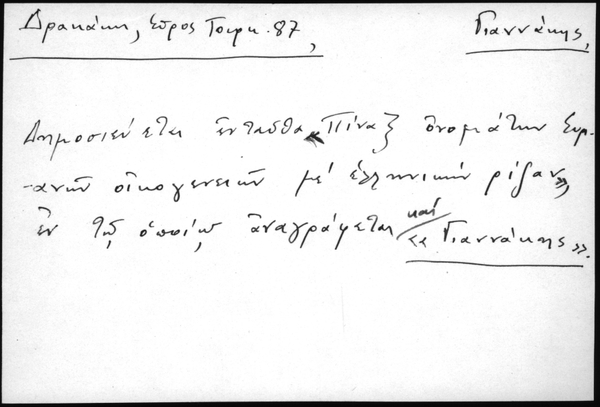 Δρακάκη, Σῦρος Τουρκ. 87, Γιαννάκης,
Δημοσιεύεται ἐνταῦθα «Πίναξ ὀνομάτων Συρ-
-ανῶν οἰκογενειῶν μέ ἑλληνικήν ρίζαν»,
ἐν τῷ ὁποίῳ ἀναγράφεται καί «Γιαννάκης».